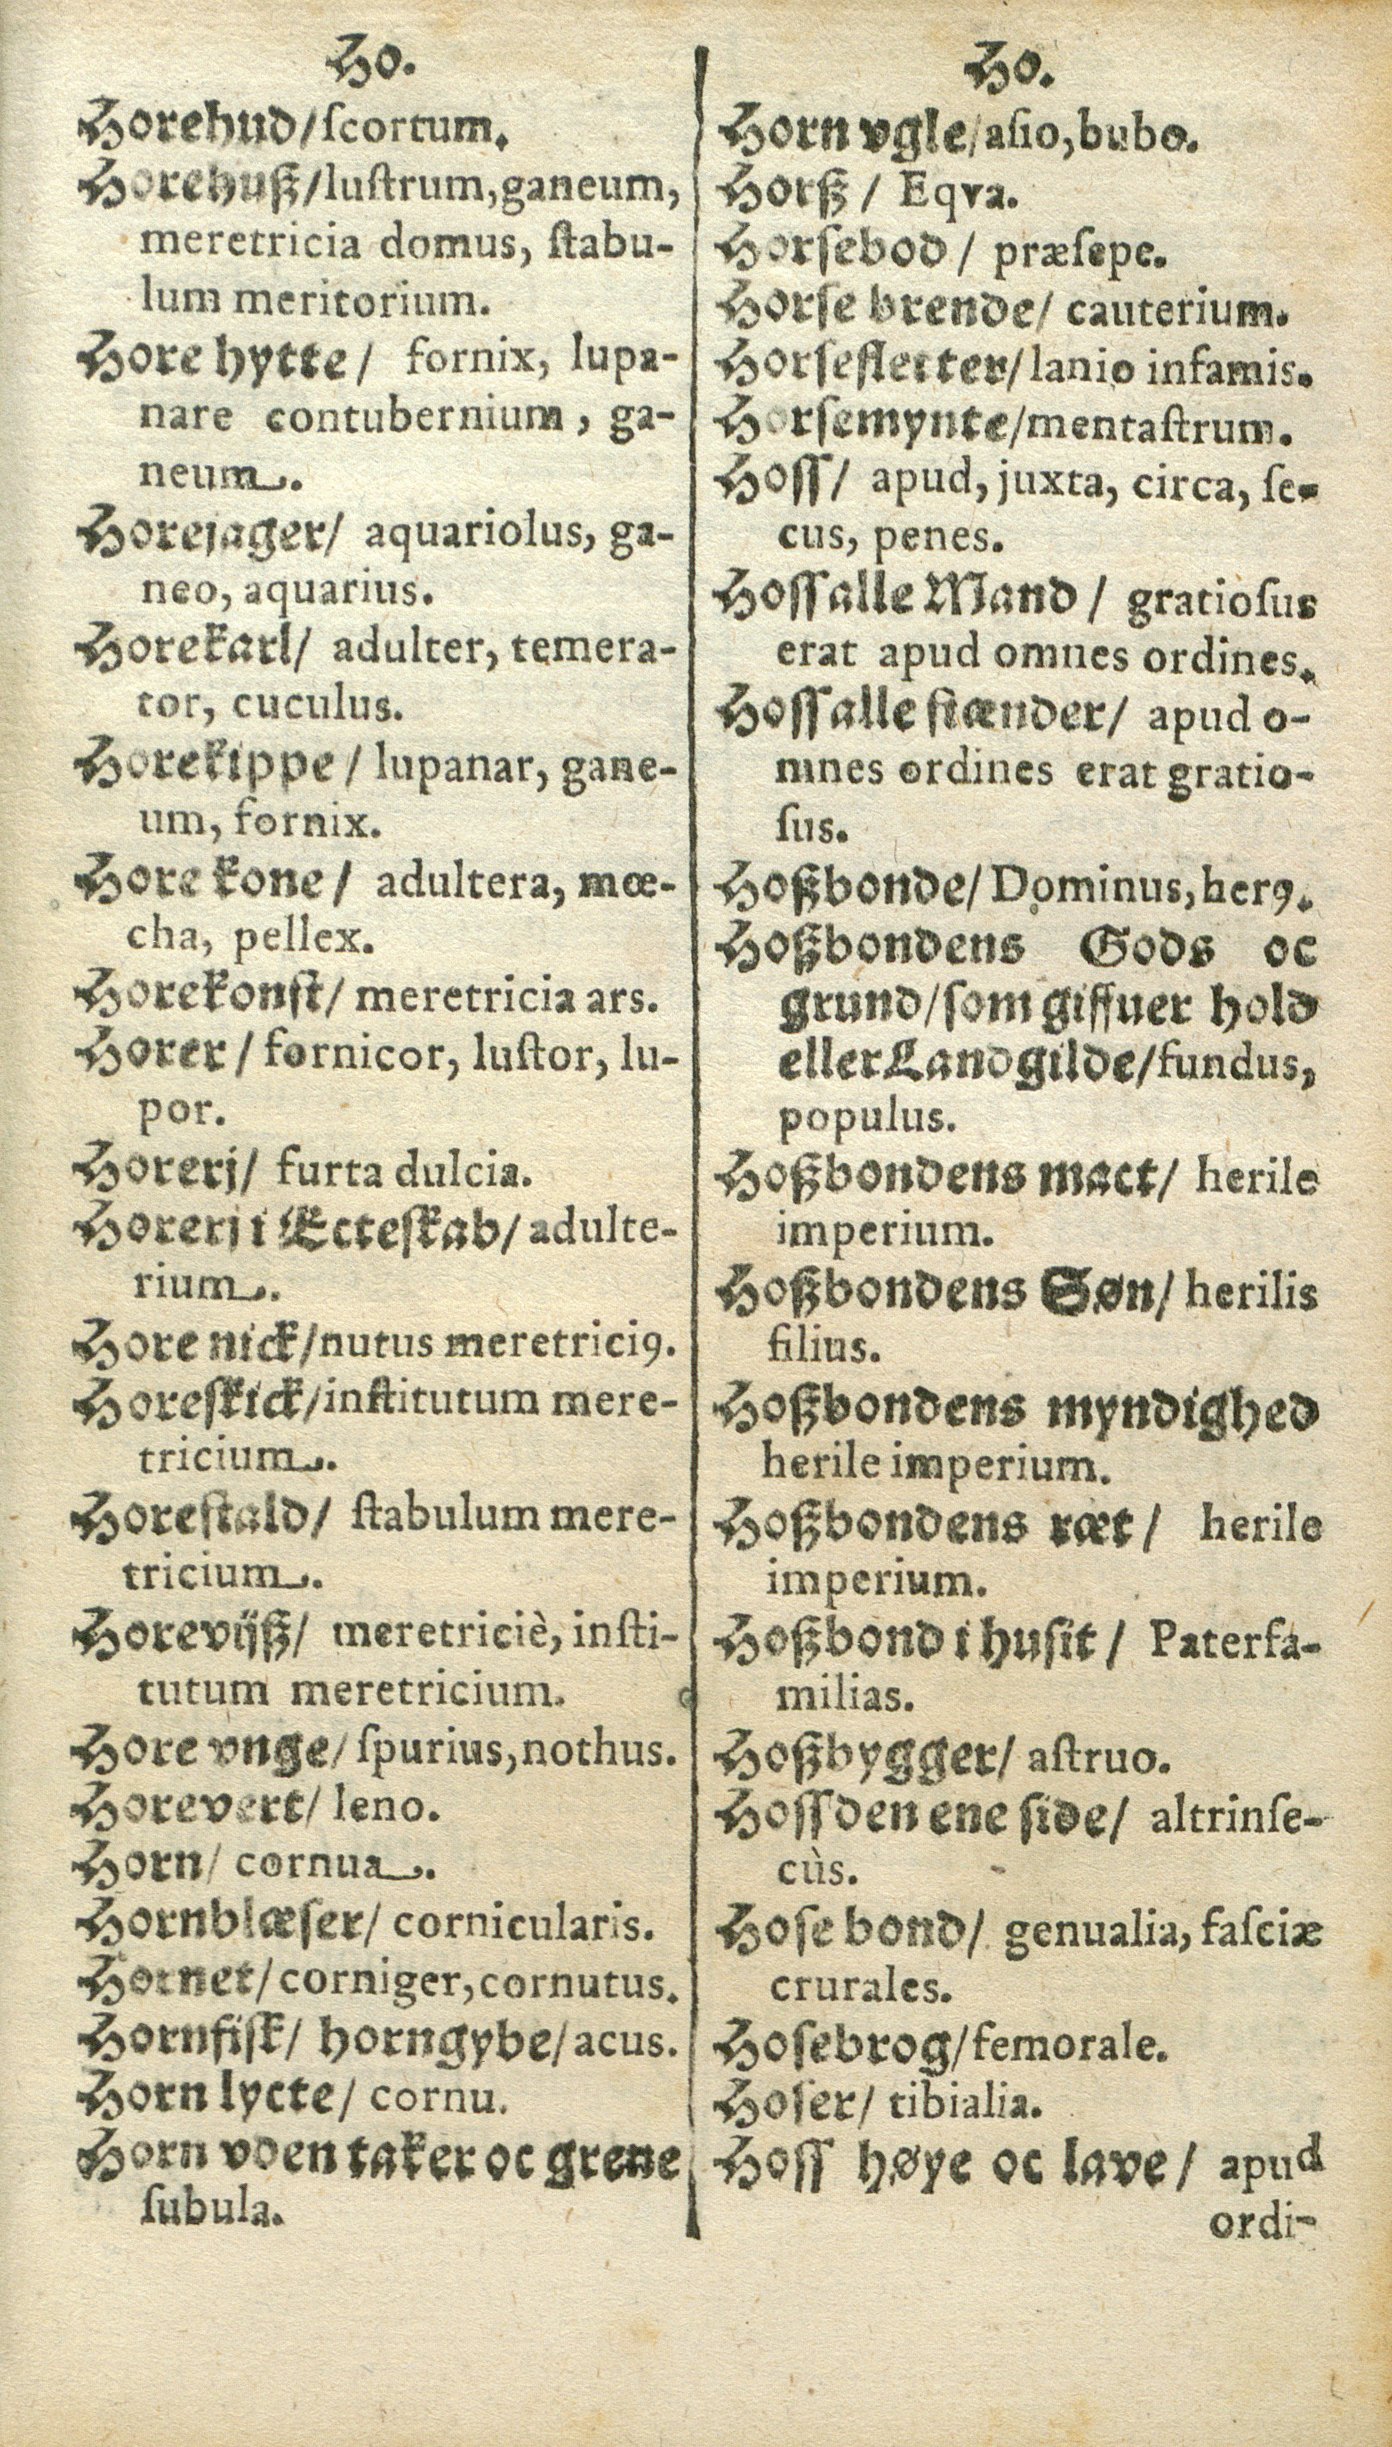 Ho.
Horehud/ſcortum.
Horehuß/luſtrum,ganeum,
meretricia domus, ſtabu-
lum meritorium.
Hore hytte/ fornix, lupa-
nare contubernium, ga-
neum.
Horejager/ aquariolus, ga-
neo, aquarius.
Horekarl/ adulter, temera-
tor, cuculus.
Horekippe/ lupanar, gane-
um, fornix.
Hore kone/ adultera, mœ-
cha, pellex.
Horekonſt/ meretricia ars.
Horer/ fornicor, luſtor, lu-
por.
Horerj/ furta dulcia.
Horerj i Ecteſkab/ adulte-
rium.
Hore nick/nutus meretriciꝰ.
Horeſkick/inſtitutum mere-
tricium.
Horeſtald/ ſtabulum mere-
tricium.
Horevijß/ meretriciè, inſti-
tutum meretricium.
Hore vnge/ ſpurius,nothus.
Horevert/ leno.
Horn/ cornua.
Hornblæſer/ cornicularis.
Hornet/corniger,cornutus.
Hornfiſk/ horngybe/acus.
Horn lycte/ cornu.
Horn vden taker oc grene
ſubula.
Ho.
Horn vgle/aſio,bubo.
Horß/ Eqva.
Horſebod/ præſepe.
Horſe brende/ cauterium.
Horſefletter/lanio infamis.
Horſemynte/mentaſtrum.
Hoſſ/ apud, juxta, circa, ſe-
cus, penes.
Hoſſ alle Mand/ gratioſus
erat apud omnes ordines.
Hoſſ alle ſtænder/ apud o-
mnes ordines erat gratio-
ſus.
Hoßbonde/Dominus,herꝰ.
Hoßbondens Gods oc
grund/ſom giffuer hold
eller Landgilde/fundus,
populus.
Hoßbondens mact/ herile
imperium.
Hoßbondens Søn/ herilis
filius.
Hoßbondens myndighed
herile imperium.
Hoßbondens ræt/ herile
imperium.
Hoßbond i huſit/ Paterfa-
milias.
Hoßbygger/ aſtruo.
Hoſſ den ene ſide/ altrinſe-
cùs.
Hoſe bond/ genualia, faſciæ
crurales.
Hoſebrog/femorale.
Hoſer/ tibialia.
Hoſſ høye oc lave/ apud
ordi-